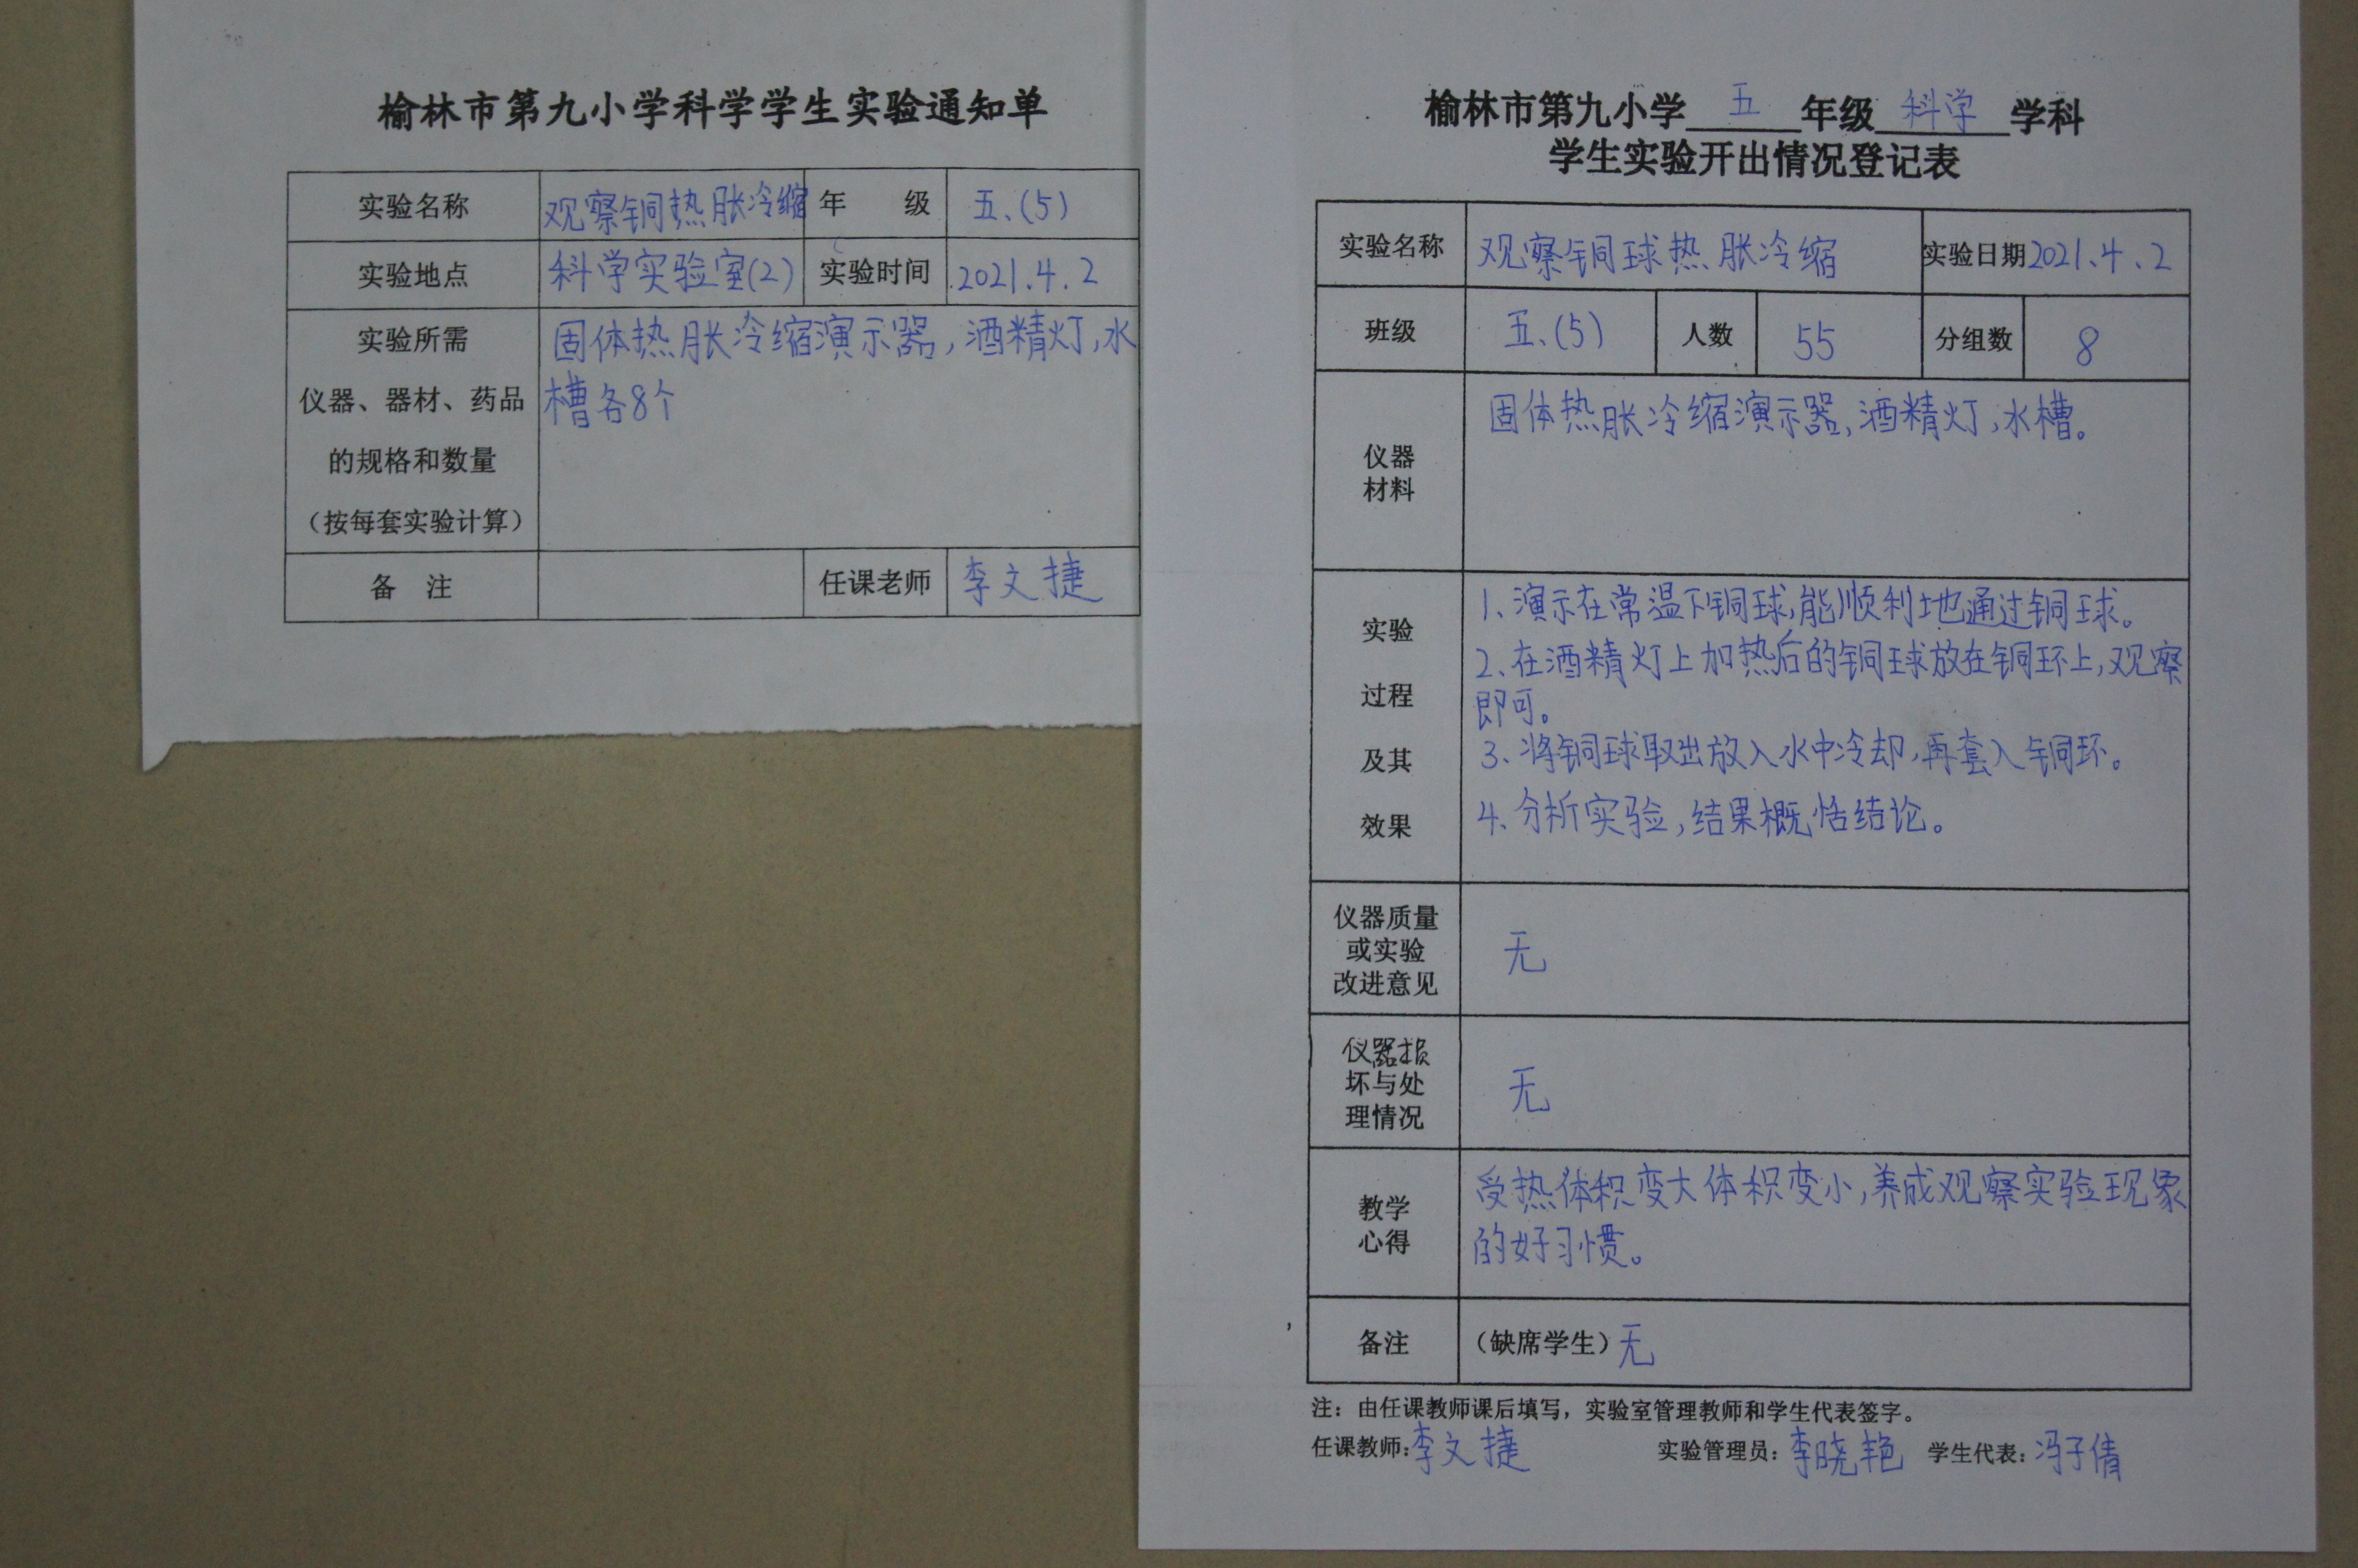 榆林市第九小学科学学生实验通知单
实验名称 观察铜热胀冷缩 年 级 五.(5)
实验地点 科学实验室(2) 实验时间 2021.4.2
实验所需
仪器、器材、药品
的规格和数量
(按每套实验计算)
固体热胀冷缩演示器,酒精灯,水
槽各8个
备 注 任课老师 李文捷
榆林市第九小学 五 年级 科学 学科
学生实验开出情况登记表
实验名称 观察铜球热胀冷缩 实验日期 2021.4.2
班级 五.(5) 人数 55 分组数 8
仪器
材料
固体热胀冷缩演示器,酒精灯,水槽。
实验
过程
及其
效果
1、演示在常温下铜球,能顺利地通过铜球。
2、在酒精灯上加热后的铜球放在铜环上,观察
即可。
3、将铜球取出放入水中冷却,再套入铜环。
4、分析实验,结果概括结论。
仪器质量
或实验
改进意见
无
仪器损
坏与处
理情况
无
教学
心得
受热体积变大体积变小,养成观察实验现象
的好习惯。
备注 (缺席学生) 无
注:由任课教师课后填写,实验室管理教师和学生代表签字。
任课教师:李文捷 实验管理员:李晓艳 学生代表:冯子倩